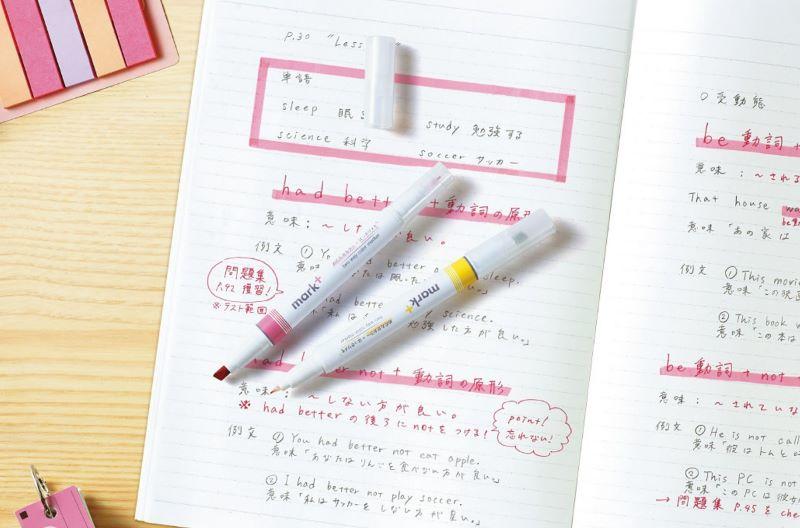 P.30 "Less
単語
sleep 眠
study 勉強する
science 科学
soccer サッカー
had bett + 動詞の原形
意味：～し 良い。
例文 ① Yo had better sleep.
意味「 たは眠 」
問題集
P.42 復習！
※テスト範囲
had bette y science.
「私は 勉強した方が良い。」
mark+
mark+
had er not + 動詞の原形
意味：～しない方が良い。
※ had betterの後ろにnotをつける！
point！
忘れない！
例文 ① You had better not eat apple.
意味「あなたはりんごを食べない方が良い。」
② I had better not play soccer.
意味「私はサッカーをしない方が良い。」
○受動態
be 動詞 +
意味：～される
That house wa
be動
意味「あの家は
例文 ① This movi
意味「この映
② This book w
意味「この本は
be 動詞 + not
意味：～されていな
例文 ① He is not calle
意味「彼はトムと
② This PC is not
意味「このPCは彼女
→ 問題集 P.45 を che